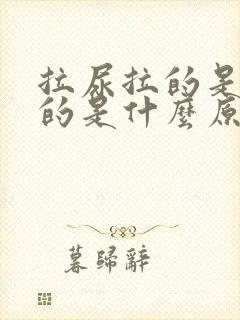 拉尿拉的是
的是什麼原
暮歸辭